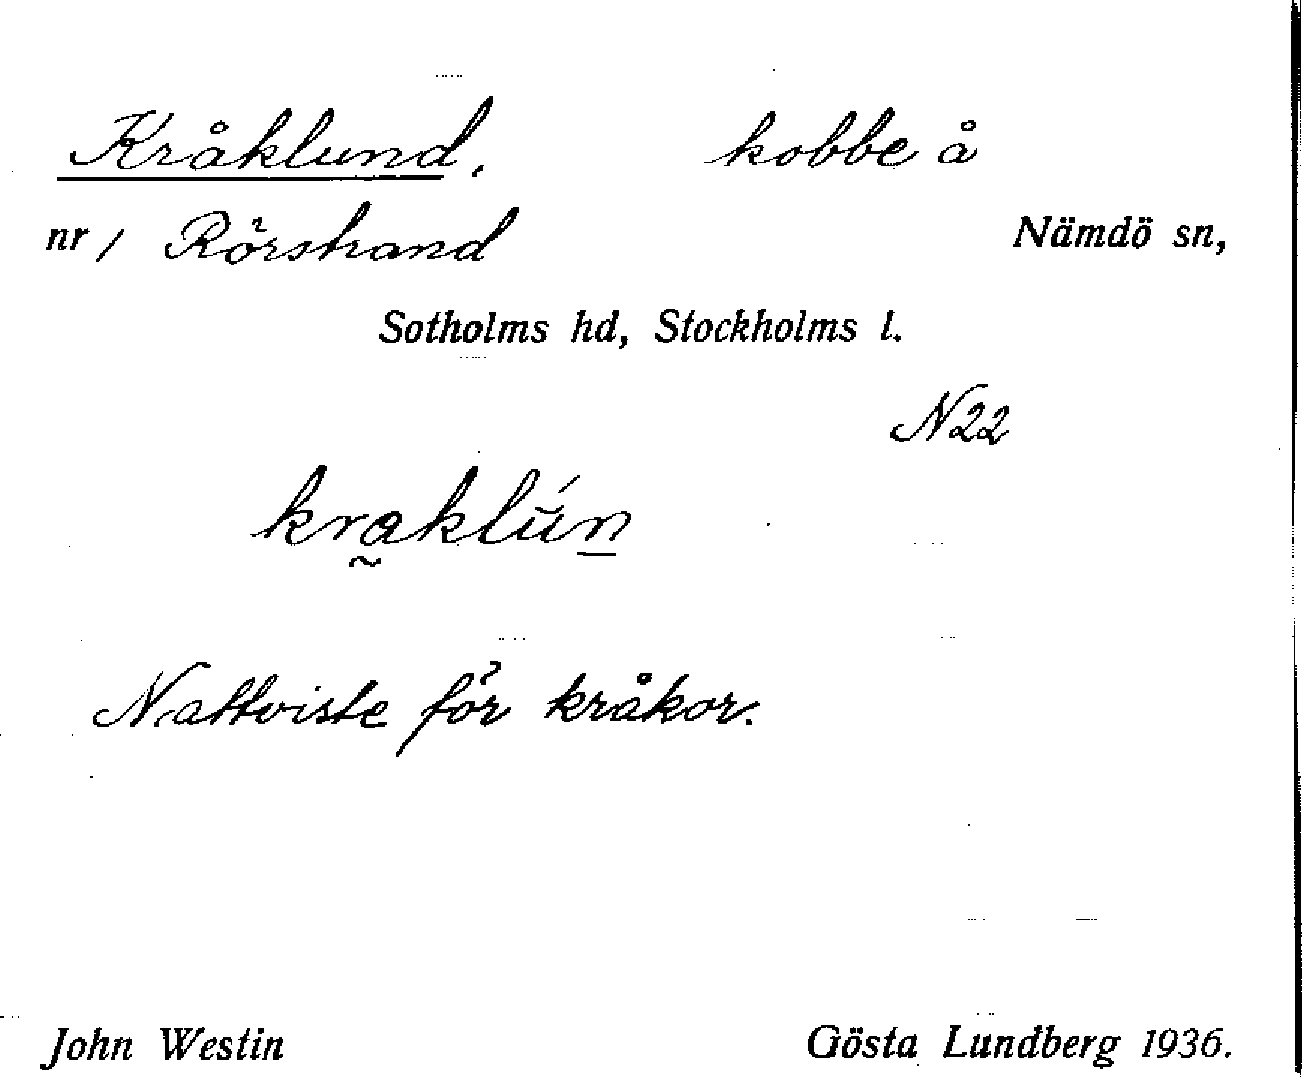 Kråklund, kobbe å
nr 1 Rörstrand Nämdö sn,
Sotholms hd, Stockholms l.
N22
kra̰klún̲
Nattviste för kråkor.
John Westin Gösta Lundberg 1936.